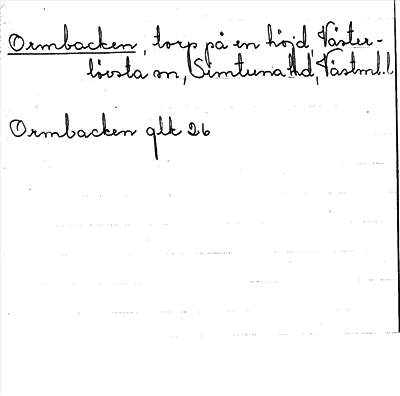 Ormbacken, torp på en höjd, Väster-
lövsta sn, Simtuna hd, Västml. l
Ormbacken glk 26